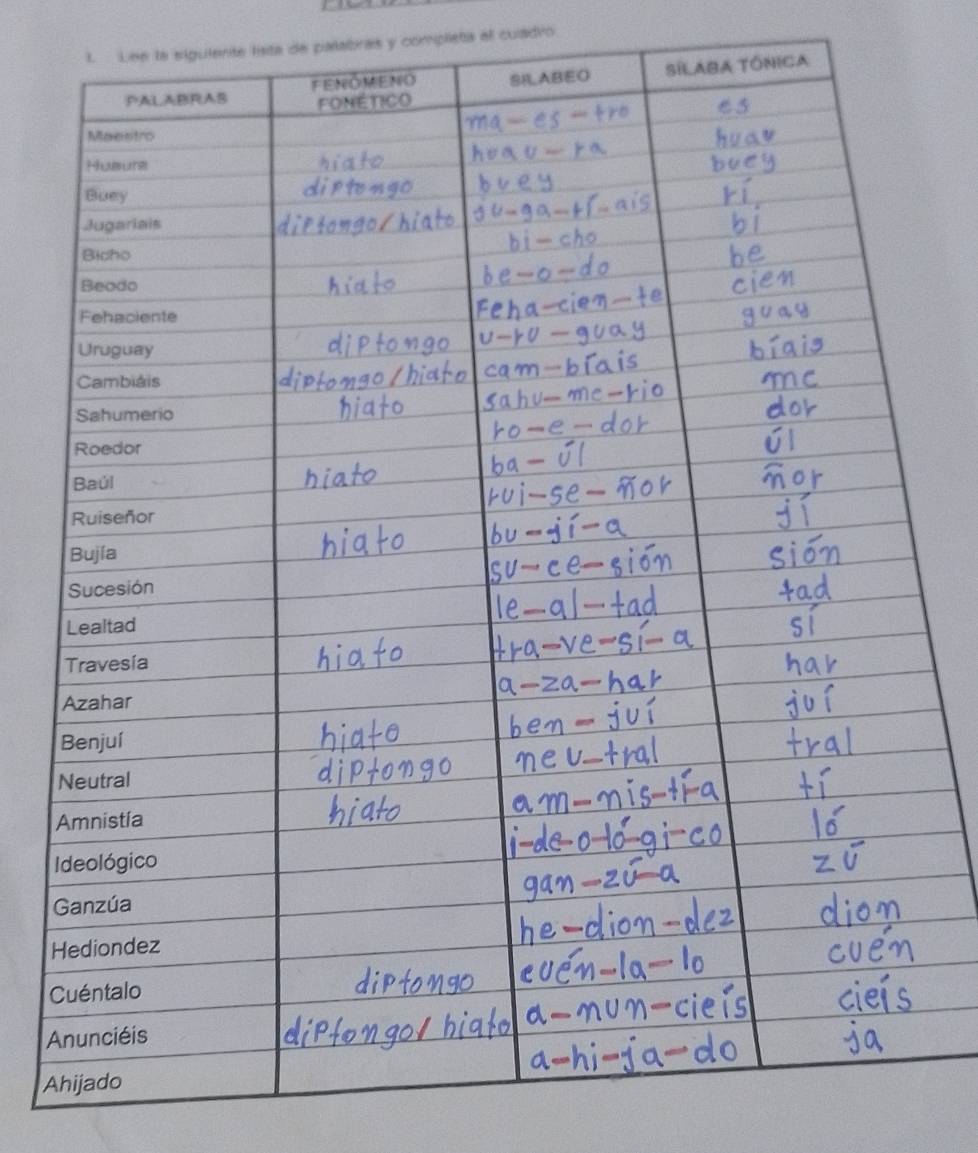 1. Lee la siguiente lista de palabras y completa el cuadro.
PALABRAS FENÓMENO FONÉTICO SILABEO SÍLABA TÓNICA
Maestro ma-es-tro es
Huaura hiato huau-ra huau
Buey diptongo buey buey
Jugaríais diptongo/hiato ju-ga-rí-ais rí
Bicho bi-cho bi
Beodo hiato be-o-do be
Fehaciente Feha-cien-te cien
Uruguay diptongo u-ru-guay guay
Cambiáis diptongo/hiato cam-bíais bíais
Sahumerio hiato sahu-me-rio me
Roedor ro-e-dor dor
Baúl hiato ba-úl úl
Ruiseñor rui-se-ñor ñor
Bujía hiato bu-jí-a jí
Sucesión su-ce-sión sión
Lealtad le-al-tad tad
Travesía hiato tra-ve-sí-a sí
Azahar a-za-har har
Benjuí hiato ben-juí juí
Neutral diptongo neu-tral tral
Amnistía hiato am-nis-tí-a tí
Ideológico i-de-o-ló-gi-co ló
Ganzúa gan-zú-a zú
Hediondez he-dion-dez dion
Cuéntalo diptongo cuén-la-lo cuén
Anunciéis diptongo/hiato a-nun-cieís cieís
Ahijado a-hi-ja-do ja